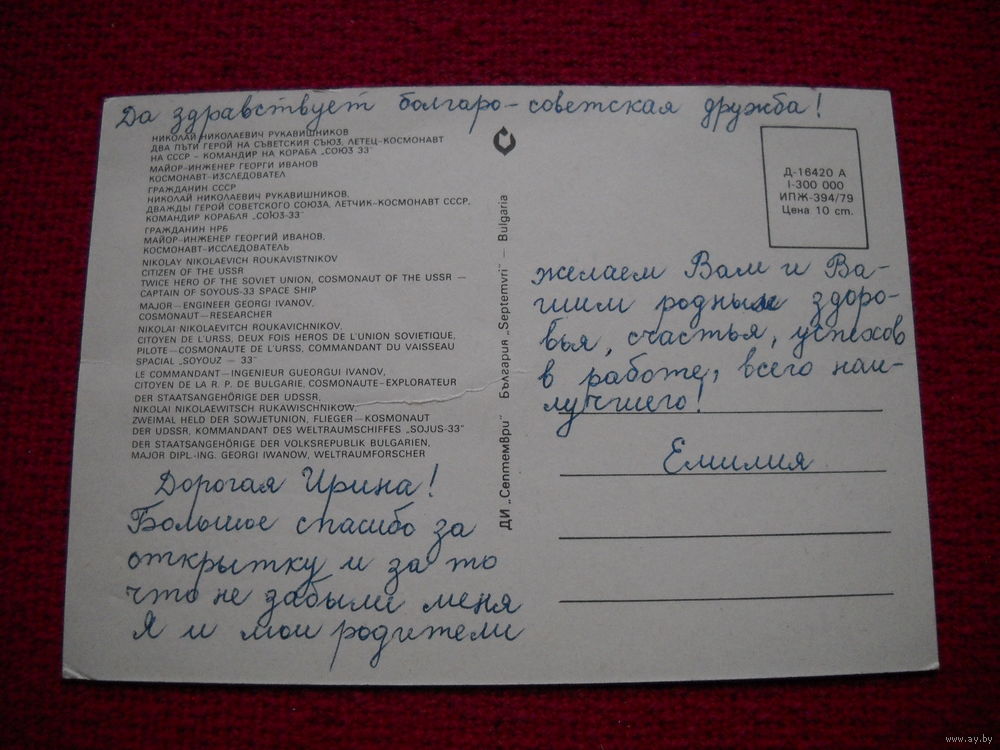 Да здравствует болгаро-советская дружба!
НИКОЛАЙ НИКОЛАЕВИЧ РУКАВИШНИКОВ
ДВА ПЪТИ ГЕРОЙ НА СЪВЕТСКИЯ СЪЮЗ, ЛЕТЕЦ-КОСМОНАВТ
НА СССР - КОМАНДИР НА КОРАБА „СОЮЗ 33"
МАЙОР-ИНЖЕНЕР ГЕОРГИ ИВАНОВ
КОСМОНАВТ-ИЗСЛЕДОВАТЕЛ
ГРАЖДАНИН СССР
НИКОЛАЙ НИКОЛАЕВИЧ РУКАВИШНИКОВ,
ДВАЖДЫ ГЕРОЙ СОВЕТСКОГО СОЮЗА, ЛЕТЧИК-КОСМОНАВТ СССР,
КОМАНДИР КОРАБЛЯ „СОЮЗ-33"
ГРАЖДАНИН НРБ
МАЙОР-ИНЖЕНЕР ГЕОРГИЙ ИВАНОВ,
КОСМОНАВТ-ИССЛЕДОВАТЕЛЬ
NIKOLAY NIKOLAEVICH ROUKAVISTNIKOV
CITIZEN OF THE USSR
TWICE HERO OF THE SOVIET UNION, COSMONAUT OF THE USSR —
CAPTAIN OF SOYOUS-33 SPACE SHIP
MAJOR—ENGINEER GEORGI IVANOV,
COSMONAUT—RESEARCHER
NIKOLAI NIKOLAEVITCH ROUKAVICHNIKOV,
CITOYEN DE L'URSS, DEUX FOIS HEROS DE L'UNION SOVIETIQUE,
PILOTE—COSMONAUTE DE L'URSS, COMMANDANT DU VAISSEAU
SPACIAL „SOYOUZ — 33"
LE COMMANDANT—INGENIEUR GUEORGUI IVANOV,
CITOYEN DE LA R. P. DE BULGARIE, COSMONAUTE-EXPLORATEUR
DER STAATSANGEHÖRIGE DER UDSSR,
NIKOLAI NIKOLAEWITSCH RUKAWISCHNIKOW,
ZWEIMAL HELD DER SOWJETUNION, FLIEGER—KOSMONAUT
DER UDSSR, KOMMANDANT DES WELTRAUMSCHIFFES „SOJUS-33"
DER STAATSANGEHÖRIGE DER VOLKSREPUBLIK BULGARIEN,
MAJOR DIPL.-ING. GEORGI IWANOW, WELTRAUMFORSCHER
Дорогая Ирина!
Большое спасибо за
открытку и за то
что не забыли меня
Я и мои родители
ДИ „Септември" България „Septemvri" — Bulgaria
Д-16420 А
I-300 000
ИПЖ-394/79
Цена 10 ст.
желаем Вам и Ва-
шим родным здоро-
вья, счастья, успехов
в работе, всего наи-
лучшего!
Емилия
www.ay.by